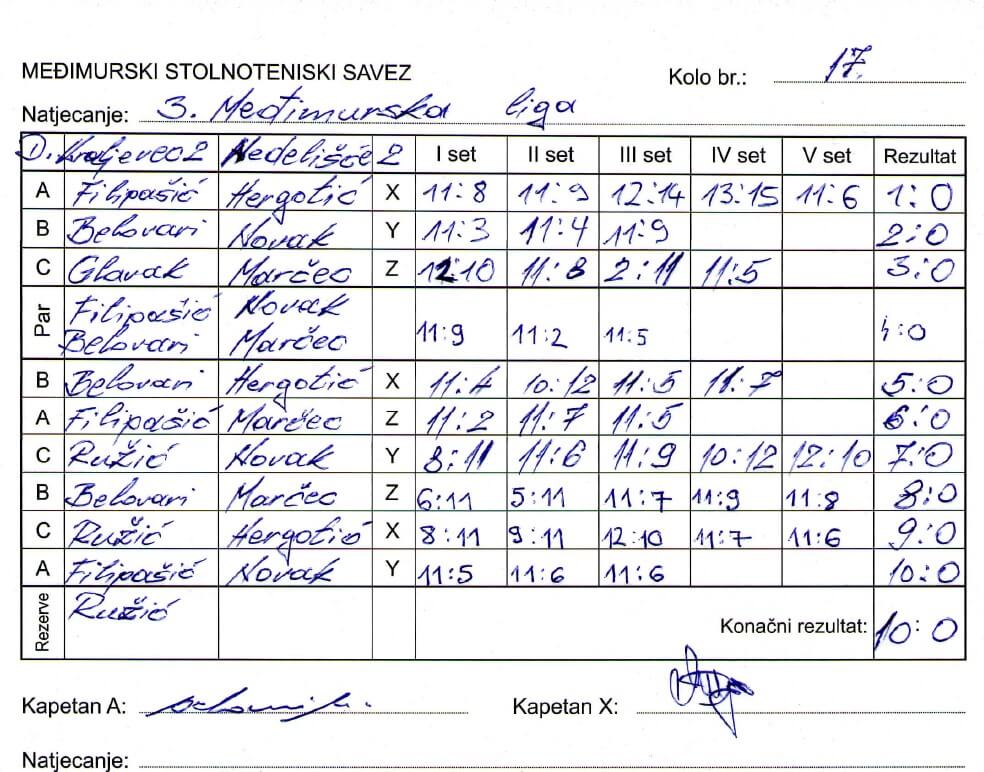 MEĐIMURSKI STOLNOTENISKI SAVEZ
Kolo br.: 17.
Natjecanje: 3. Međimurska liga
D. Kraljevec 2 Nedelišće 2 I set II set III set IV set V set Rezultat
A Filipašić Hergotić X 11:8 11:9 12:14 13:15 11:6 1:0
B Belovari Novak Y 11:3 11:4 11:9 2:0
C Glavak Marčec Z 12:10 11:8 2:11 11:5 3:0
Par Filipašić Novak
Belovari Marčec 11:9 11:2 11:5 4:0
B Belovari Hergotić X 11:4 10:12 11:5 11:7 5:0
A Filipašić Marčec Z 11:2 11:7 11:5 6:0
C Ružić Novak Y 8:11 11:6 11:9 10:12 12:10 7:0
B Belovari Marčec Z 6:11 5:11 11:7 11:9 11:8 8:0
C Ružić Hergotić X 8:11 9:11 12:10 11:7 11:6 9:0
A Filipašić Novak Y 11:5 11:6 11:6 10:0
Rezerve Ružić Konačni rezultat: 10:0
Kapetan A: Kapetan X:
Natjecanje: